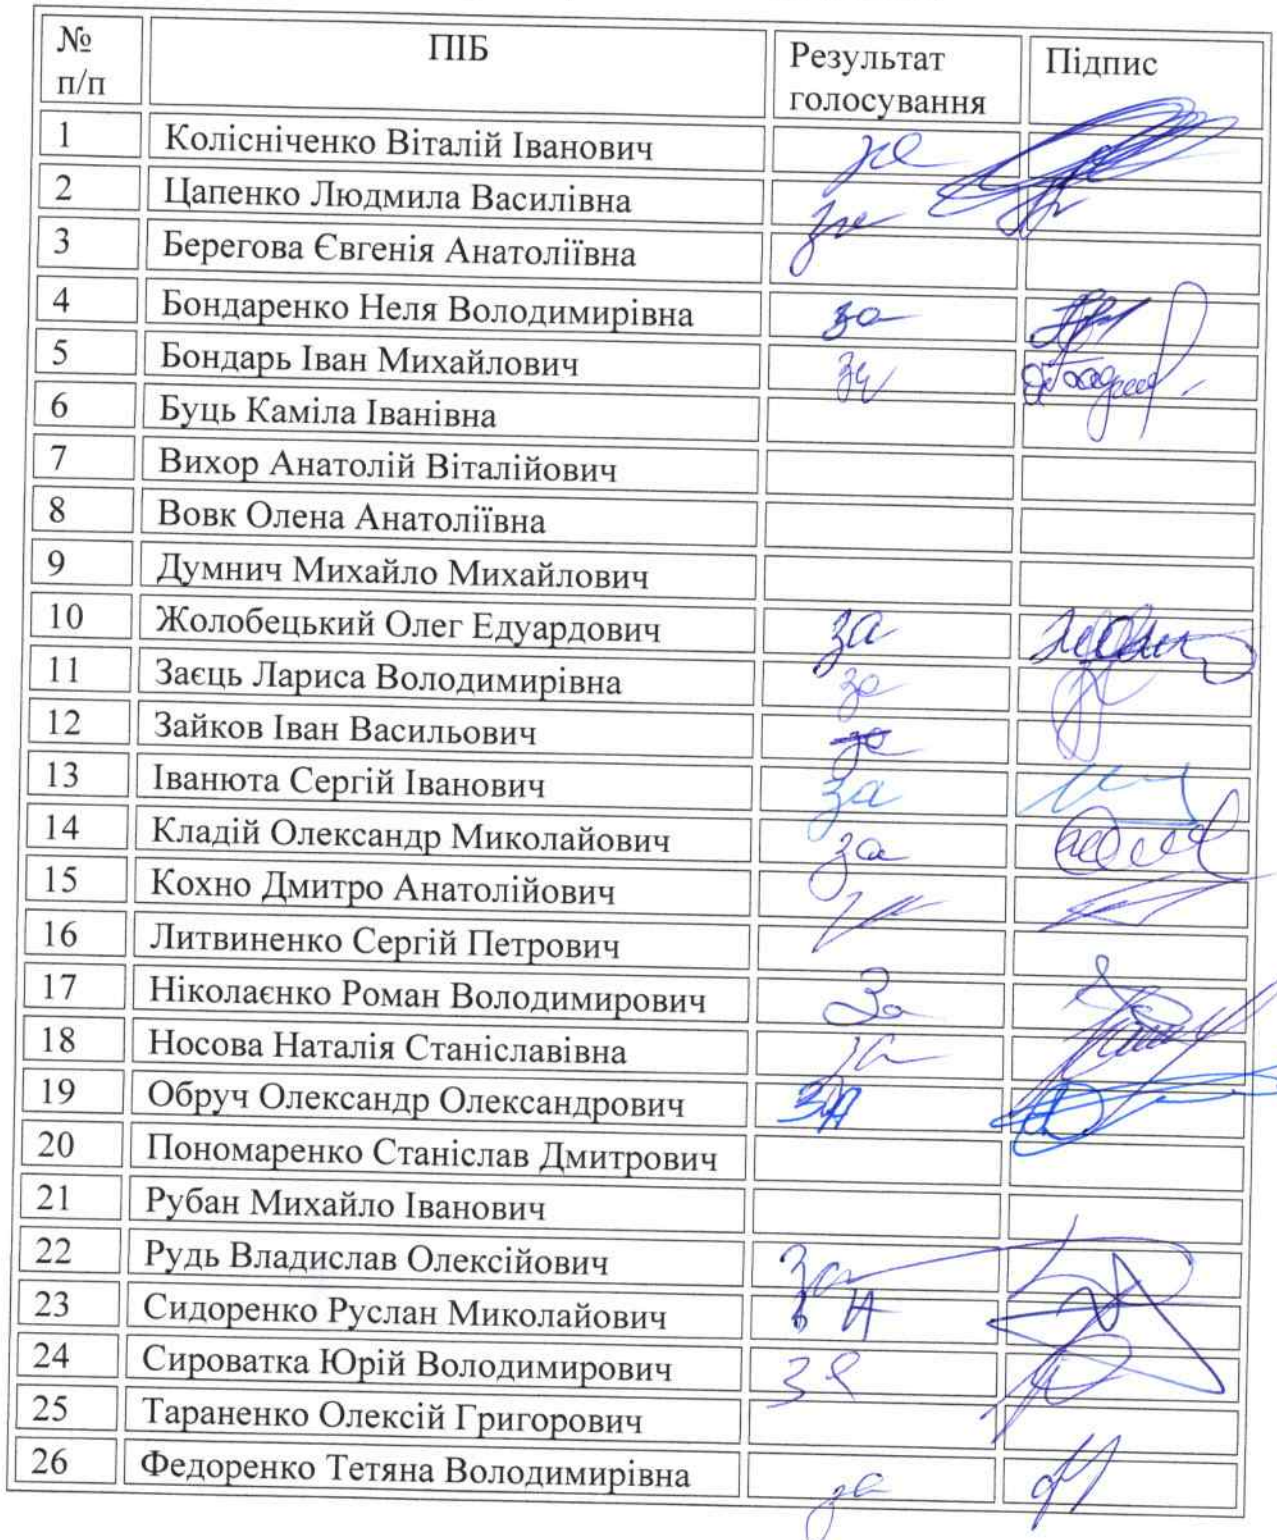 № п/п ПІБ Результат голосування Підпис
1 Колісніченко Віталій Іванович за
2 Цапенко Людмила Василівна за
3 Берегова Євгенія Анатоліївна
4 Бондаренко Неля Володимирівна за
5 Бондарь Іван Михайлович за
6 Буць Каміла Іванівна
7 Вихор Анатолій Віталійович
8 Вовк Олена Анатоліївна
9 Думнич Михайло Михайлович
10 Жолобецький Олег Едуардович за
11 Заєць Лариса Володимирівна за
12 Зайков Іван Васильович
13 Іванюта Сергій Іванович за
14 Кладій Олександр Миколайович за
15 Кохно Дмитро Анатолійович
16 Литвиненко Сергій Петрович
17 Ніколаєнко Роман Володимирович За
18 Носова Наталія Станіславівна за
19 Обруч Олександр Олександрович ЗА
20 Пономаренко Станіслав Дмитрович
21 Рубан Михайло Іванович
22 Рудь Владислав Олексійович За
23 Сидоренко Руслан Миколайович
24 Сироватка Юрій Володимирович за
25 Тараненко Олексій Григорович
26 Федоренко Тетяна Володимирівна за